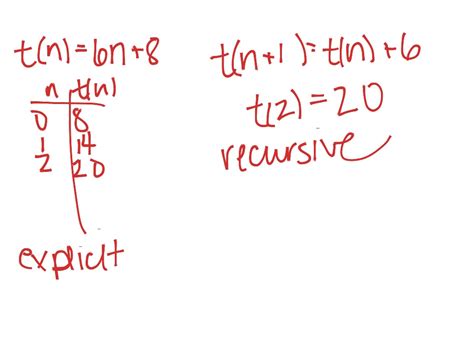 t(n)=6n+8
n t(n)
0 8
1 14
2 20
explicit
t(n+1)=t(n)+6
t(2)=20
recursive